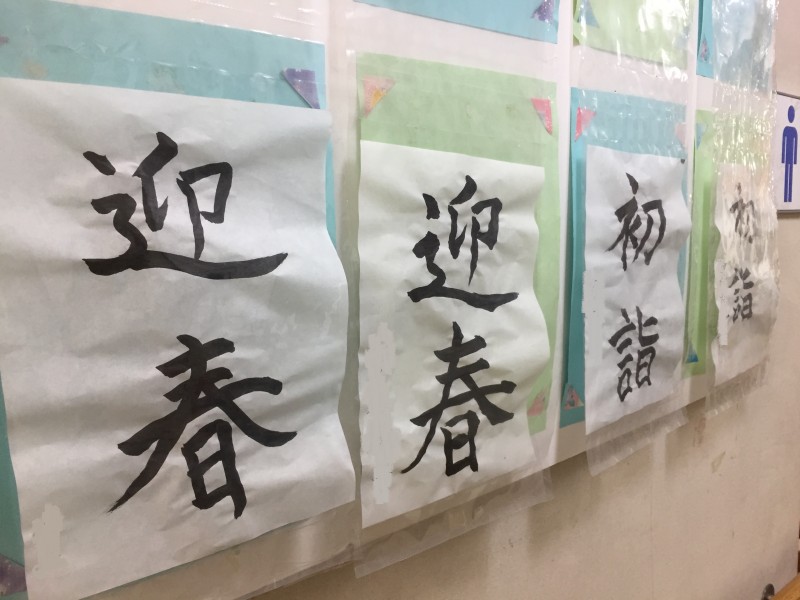 迎春
迎春
初詣
初詣